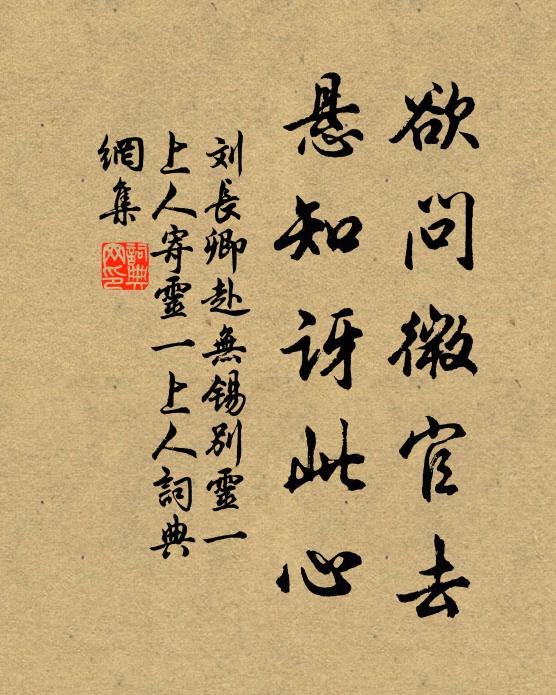 欲问微官去
悬知讶此心
刘長卿赴無锡别靈一
上人寄靈一上人詞典
網集
詞典网印